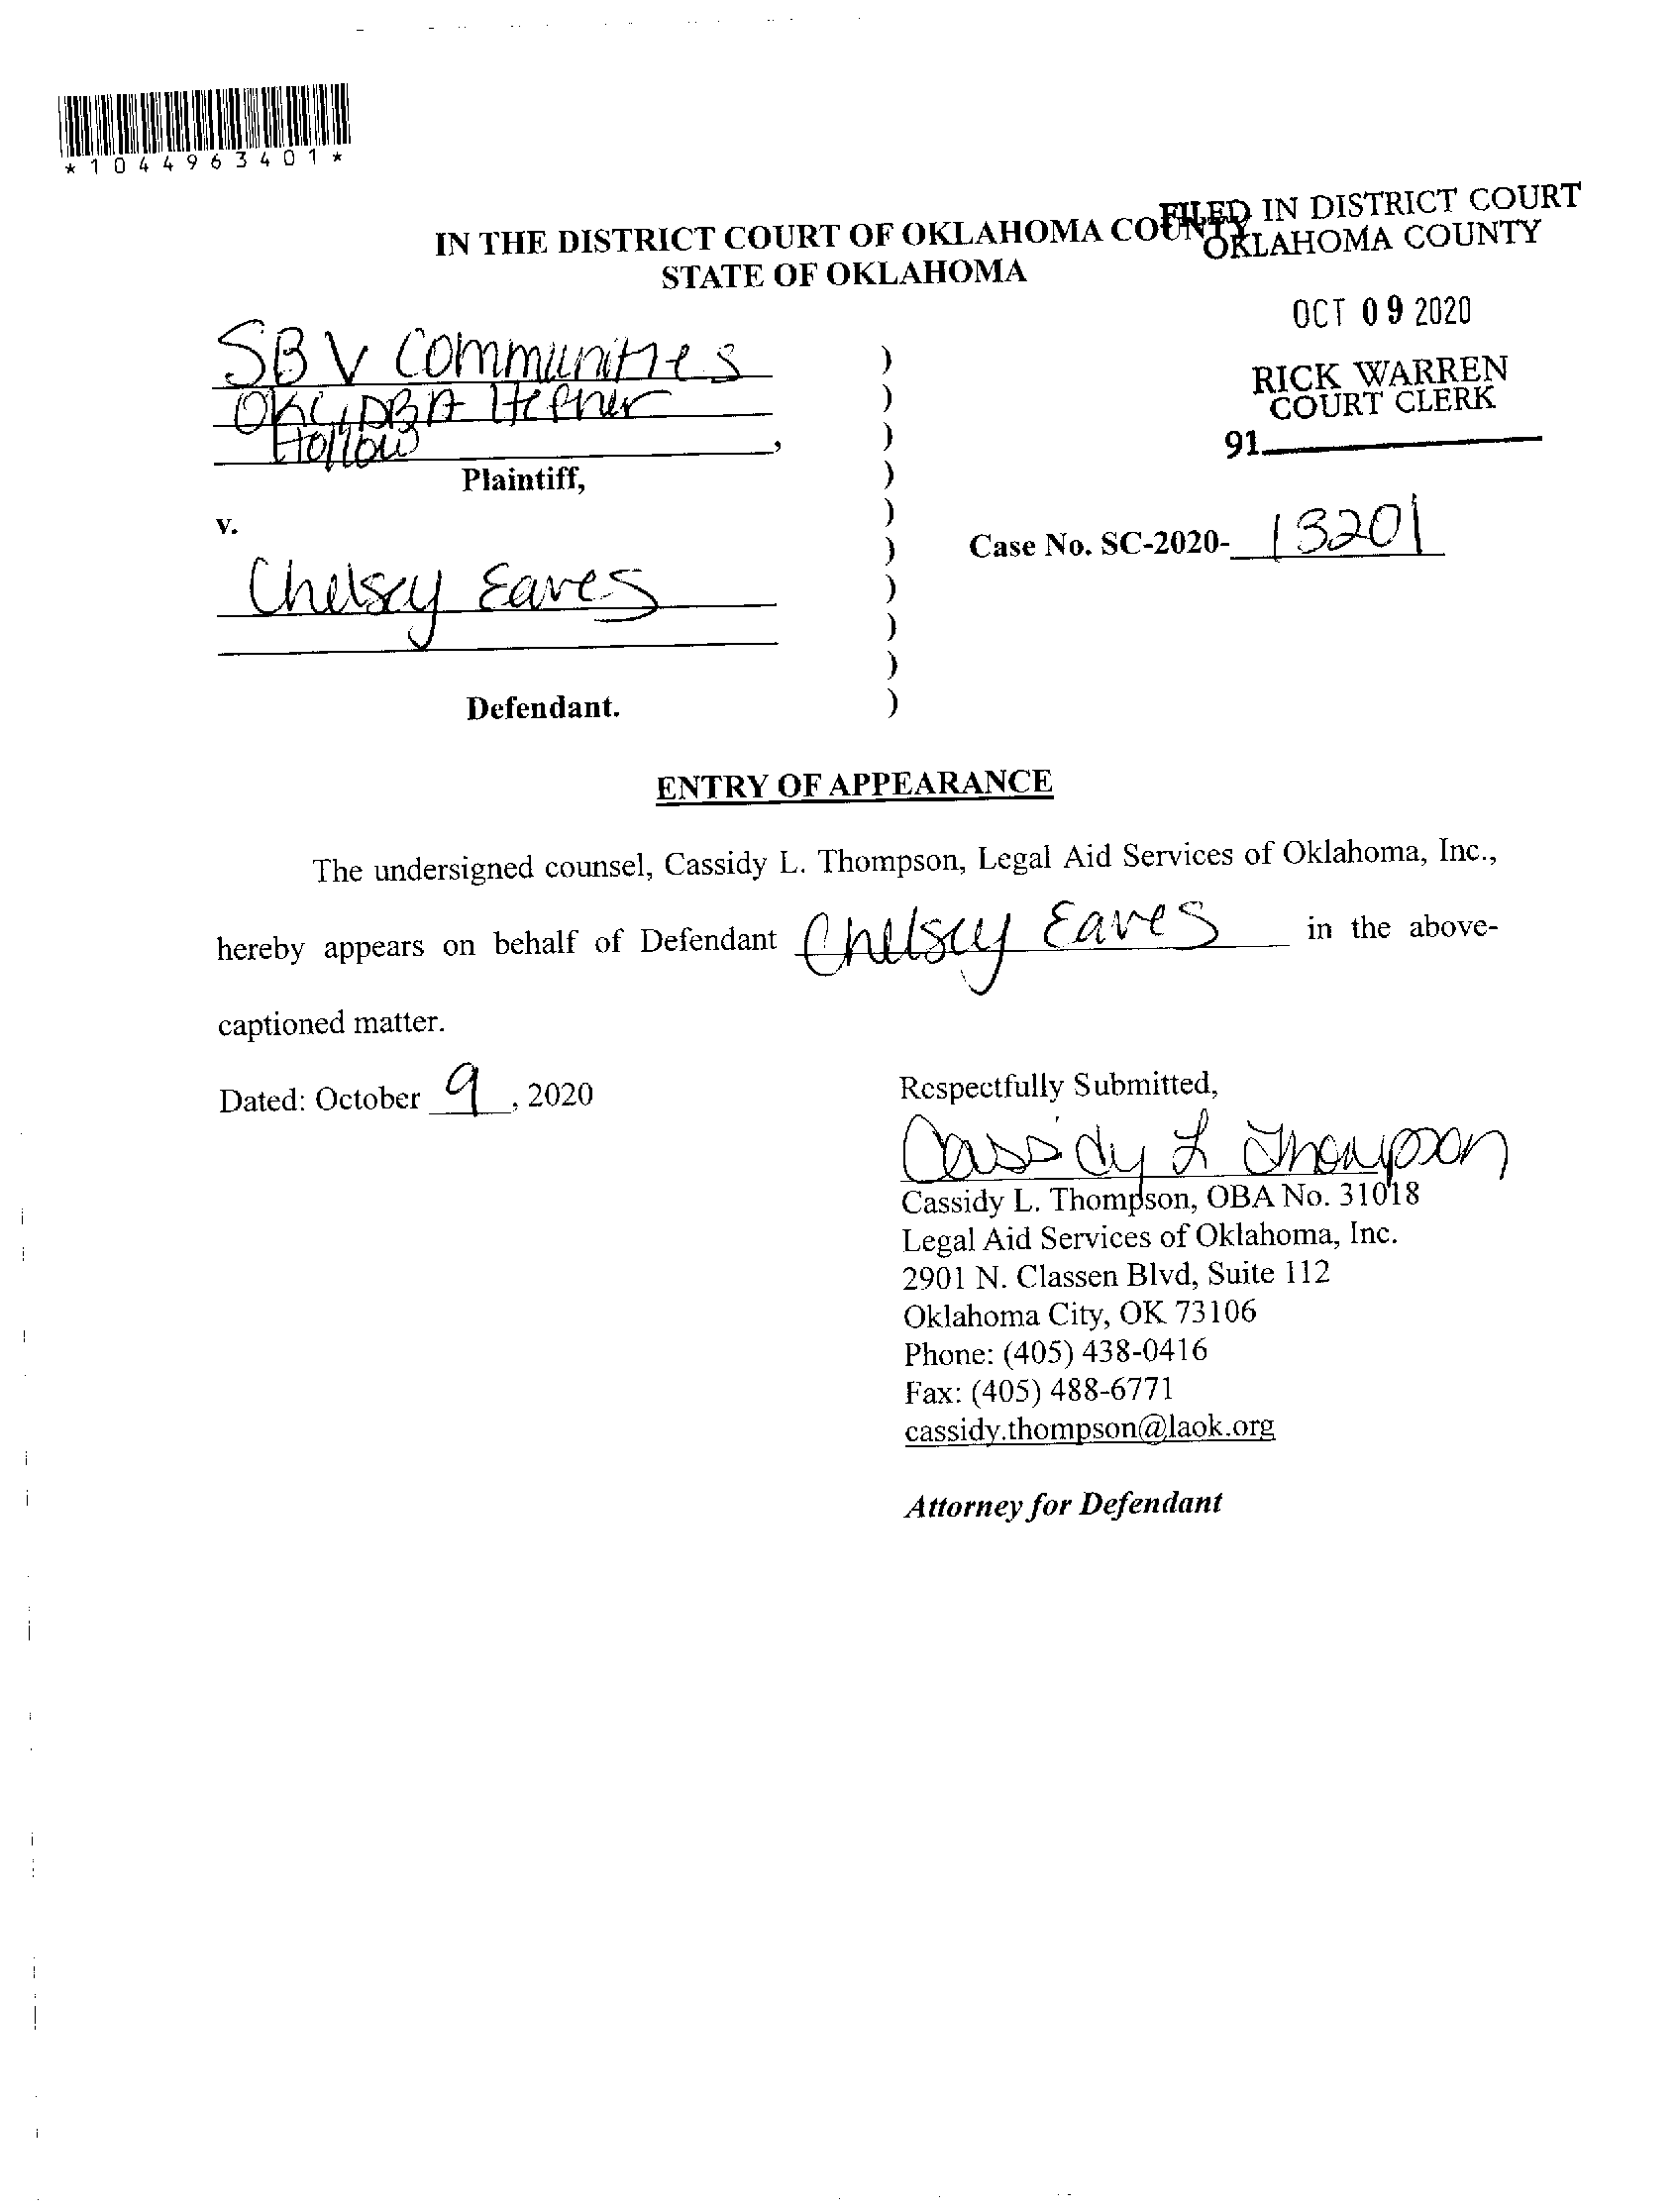 *1044963401*
FILED IN DISTRICT COURT
OKLAHOMA COUNTY
IN THE DISTRICT COURT OF OKLAHOMA COUNTY
STATE OF OKLAHOMA
OCT 09 2020
RICK WARREN
COURT CLERK
91
SBV Communities
OKC, DBA Hefner
Hollow
,
Plaintiff,
v.
Case No. SC-2020- 13201
Chelsey Eaves
Defendant.
)
)
)
)
)
)
)
)
)
)
ENTRY OF APPEARANCE
The undersigned counsel, Cassidy L. Thompson, Legal Aid Services of Oklahoma, Inc.,
hereby appears on behalf of Defendant Chelsey Eaves in the above-
captioned matter.
Dated: October 9, 2020
Respectfully Submitted,
Cassidy L Thompson
Cassidy L. Thompson, OBA No. 31018
Legal Aid Services of Oklahoma, Inc.
2901 N. Classen Blvd, Suite 112
Oklahoma City, OK 73106
Phone: (405) 438-0416
Fax: (405) 488-6771
cassidy.thompson@laok.org
Attorney for Defendant